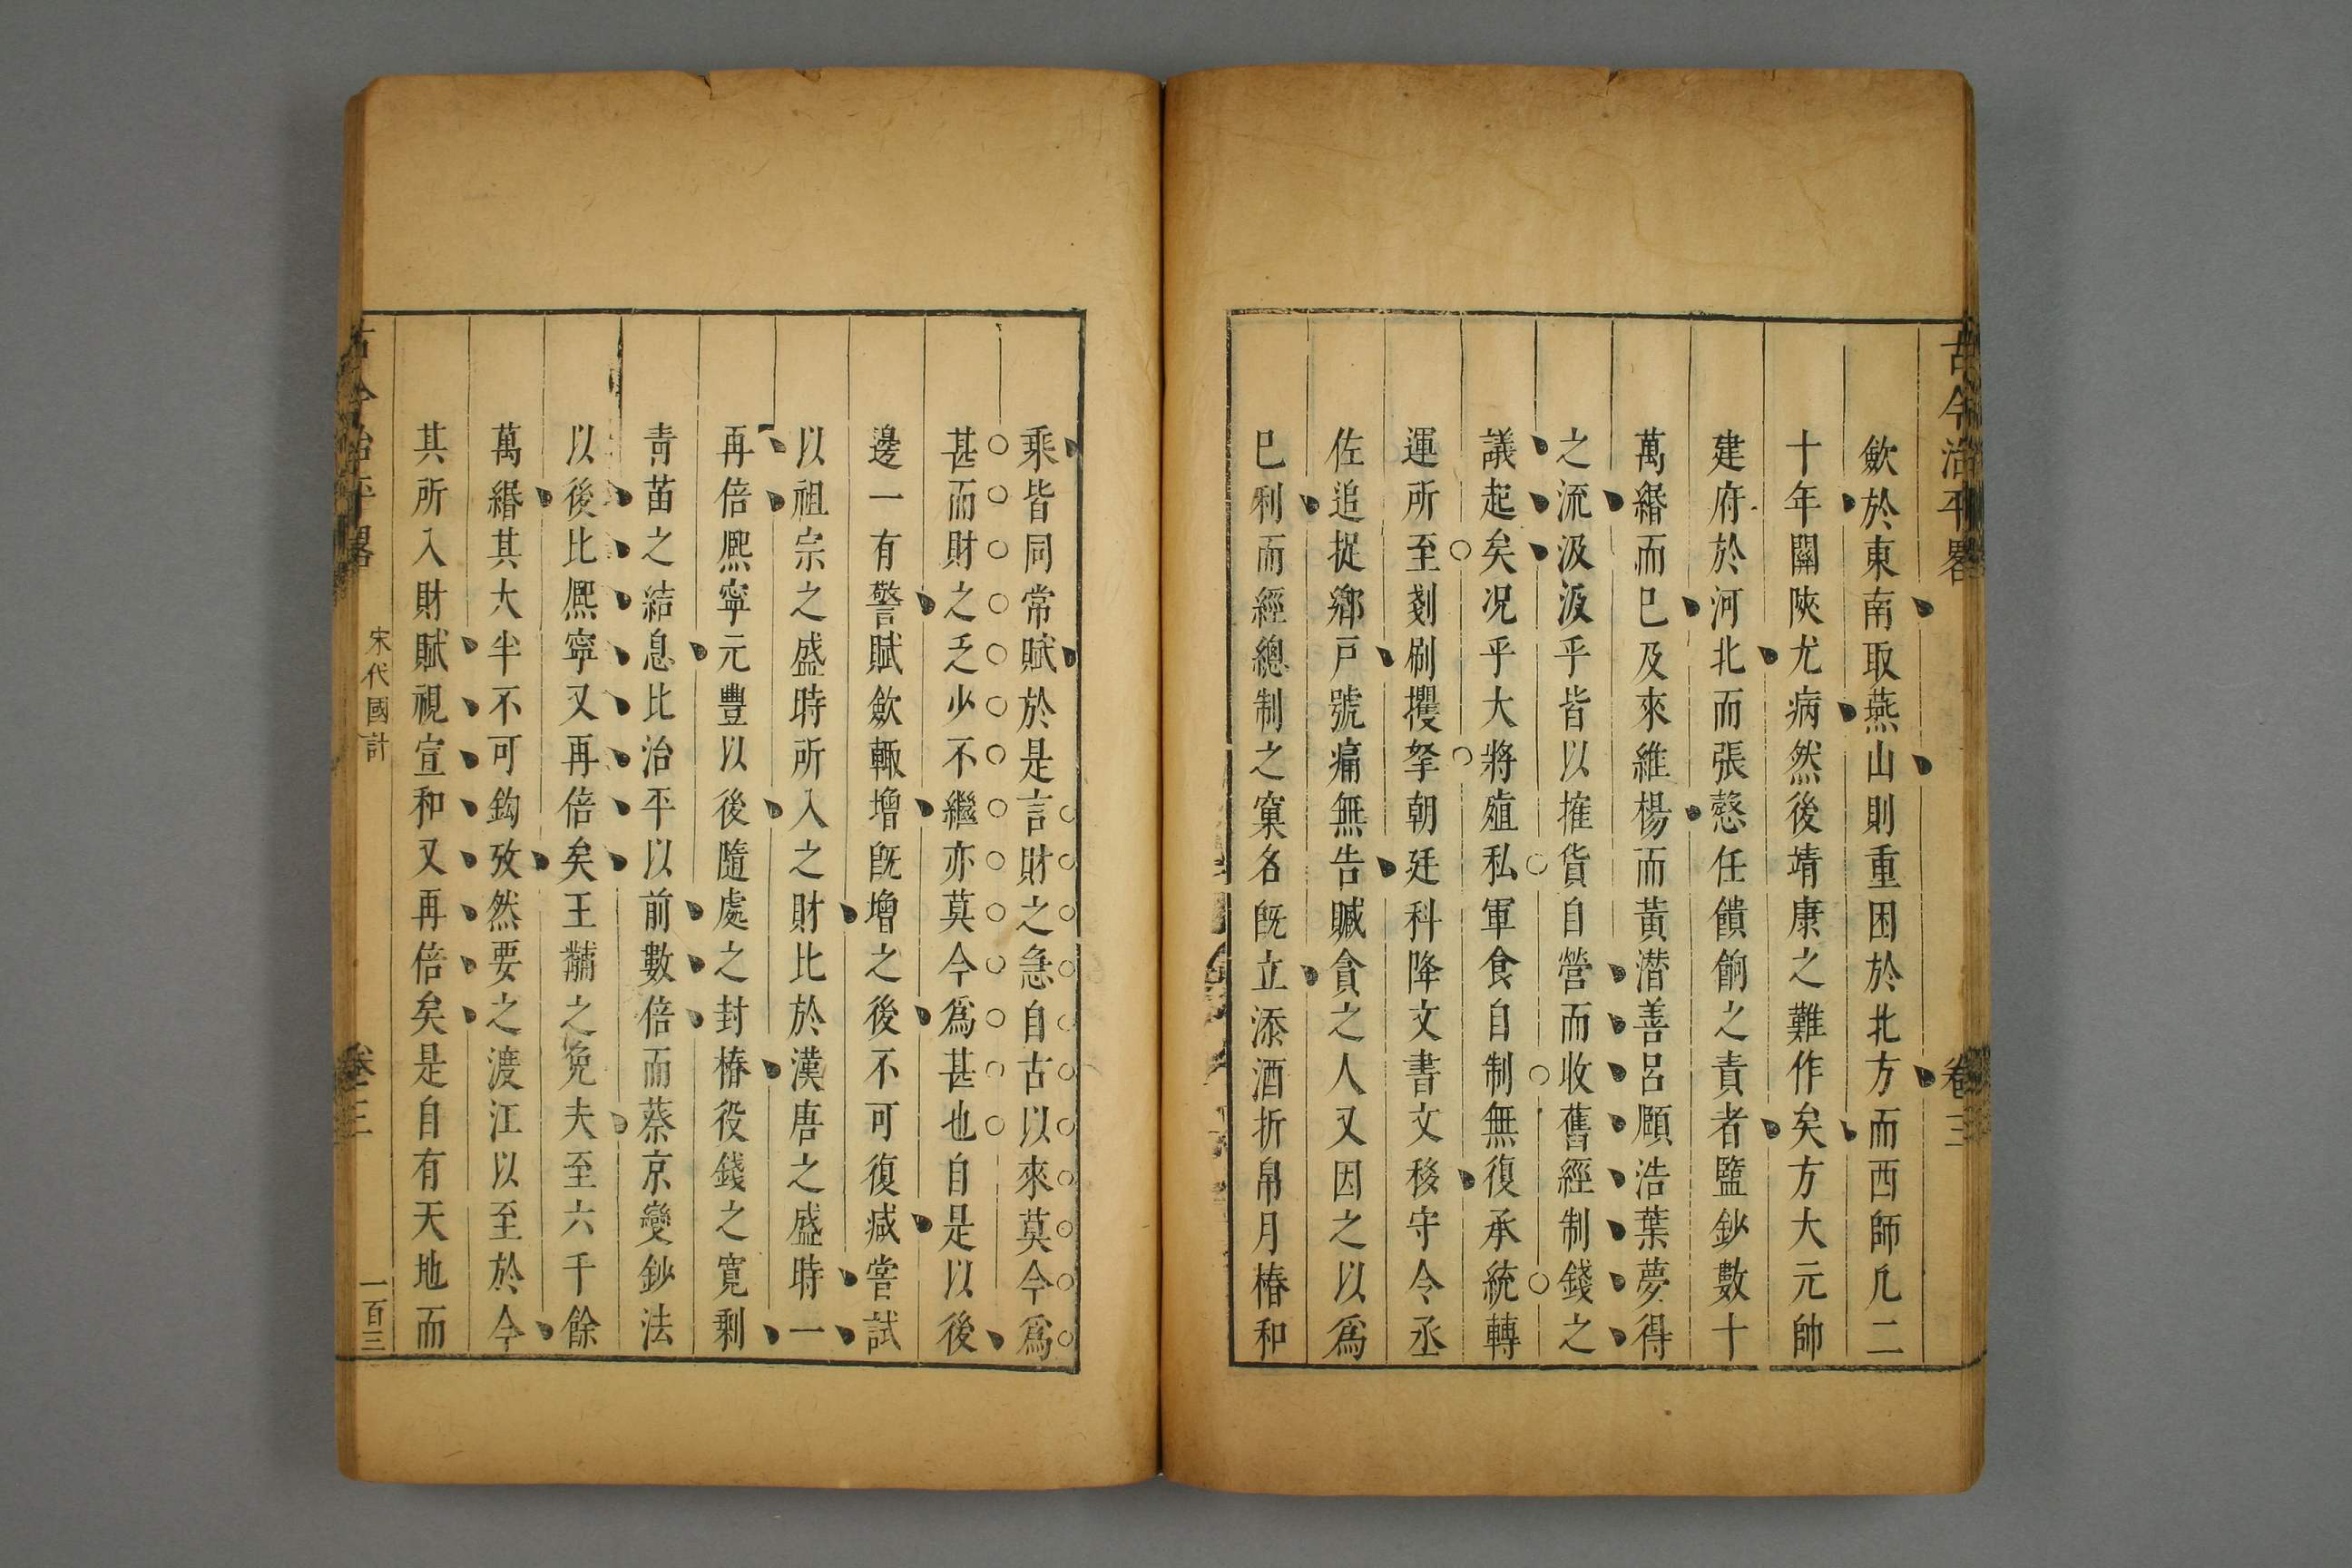 古今治平畧 卷三
歛於東南取燕山則重困於北方而西師凢二
十年關陝尤病然後靖康之難作矣方大元帥
建府於河北而張慤任饋餉之責者鹽鈔數十
萬緡而已及來維楊而黃潛善呂頤浩葉夢得
之流汲汲乎皆以搉貨自營而收舊經制錢之
議起矣況乎大將殖私軍食自制無復承統轉
運所至剗刷攫拏朝廷科降文書文移守令丞
佐追捉鄉戸號痛無告贓貪之人又因之以爲
已利而經總制之窠名旣立添酒折帛月樁和
乘皆同常賦於是言財之急自古以來莫今爲
甚而財之乏少不繼亦莫今爲甚也自是以後
邊一有警賦歛輙增旣增之後不可復减嘗試
以祖宗之盛時所入之財比於漢唐之盛時一
再倍熈寧元豐以後隨處之封樁役錢之寛剩
青苗之結息比治平以前數倍而蔡京變鈔法
以後比熈寧又再倍矣王黼之免夫至六千餘
萬緡其大半不可鈎攷然要之渡江以至於今
其所入財賦視宣和又再倍矣是自有天地而
古今治平畧 宋代國計 卷三 一百三